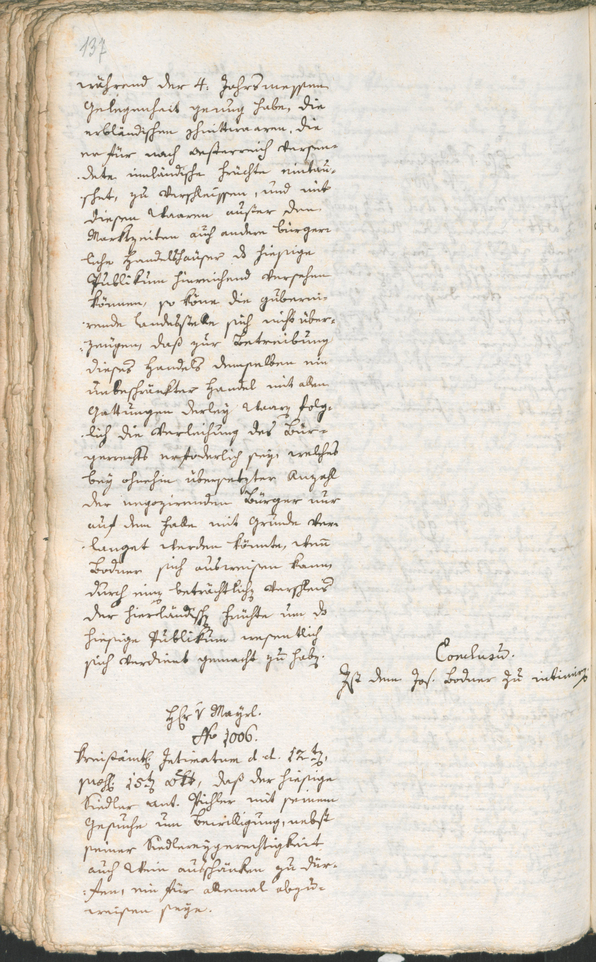 137
während der 4. Jahrsmessen
Gelegenheit genug habe, die
erbländischen Schnittwaaren, die
er für nach Oesterreich versen-
dete innländische Früchte eintau-
schet, zu verschleissen, und mit
diesen Waaren ausser den
Marktzeiten auch andere bürger-
liche Handelshäuser das hiesige
Publikum hinreichend versehen
können, so köne die guberni-
rende Landesstelle sich nicht über-
zeugen, daß zur Betreibung
dieses Handels demselben ein
unbeschränkter Handel mit allen
Gattungen derley Waaren folg-
lich die Verleihung des Bür-
gerrechts erfoderlich sey, welches
bey ohnehin übersetzter Anzahl
der negozirenden Bürger nur
auf dem Falle mit Grunde ver-
langet werden könnte, wenn
Bodner sich ausweisen kann,
durch einen beträchtlichen Verschleis
der hierländischen Früchte um das
hiesige Publikum wesentlich
sich verdient gemacht zu haben.
Conclusum.
Ist dem Jos. Bodner zu intimiren.
Hr. v. Mayrl.
No 1006.
Kreisämtl. Intimatum d. d. 12ten,
15ten , daß der hiesige
Siedler Ant. Pichler mit seinem
Gesuche um Bewilligung, nebst
seiner Siedlereygerechtigkeit
auch Wein ausschänken zu dür-
fen, ein für allemal abzu-
weisen seye.